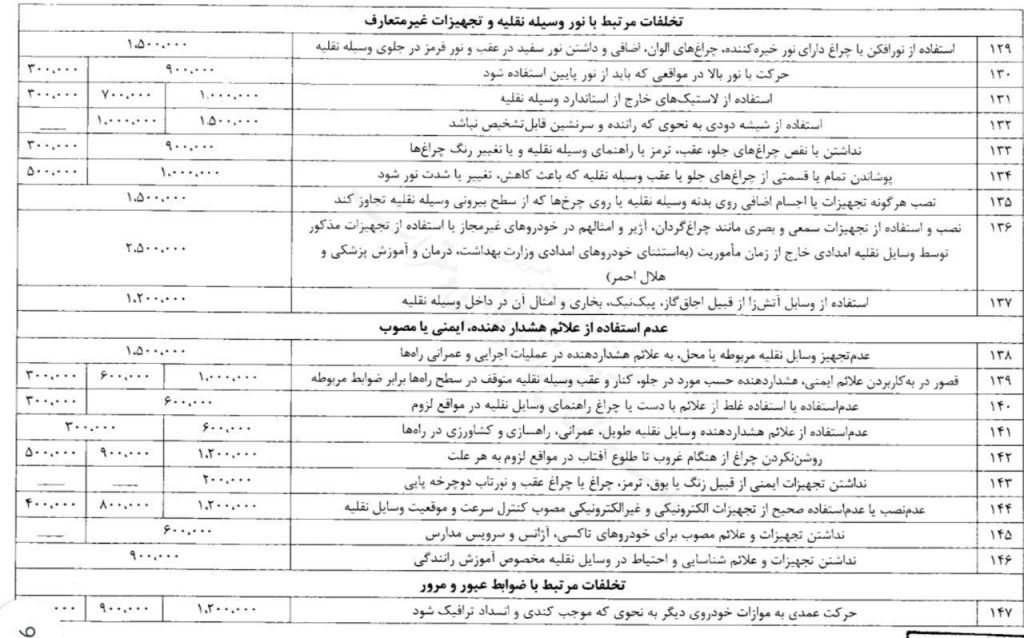 تخلفات مرتبط با نور وسیله نقلیه و تجهیزات غیرمتعارف
۱۲۹ استفاده از نورافکن یا چراغ دارای نور خیره‌کننده، چراغ‌های الوان، اضافی و داشتن نور سفید در عقب و نور قرمز در جلوی وسیله نقلیه ۱،۵۰۰،۰۰۰
۱۳۰ حرکت با نور بالا در مواقعی که باید از نور پایین استفاده شود ۹۰۰،۰۰۰ ۳۰۰،۰۰۰
۱۳۱ استفاده از لاستیک‌های خارج از استاندارد وسیله نقلیه ۱،۰۰۰،۰۰۰ ۷۰۰،۰۰۰ ۳۰۰،۰۰۰
۱۳۲ استفاده از شیشه دودی به نحوی که راننده و سرنشین قابل‌تشخیص نباشد ۱،۵۰۰،۰۰۰ ۱،۰۰۰،۰۰۰ ___
۱۳۳ نداشتن یا نقص چراغ‌های جلو، عقب، ترمز یا راهنمای وسیله نقلیه و یا تغییر رنگ چراغ‌ها ۹۰۰،۰۰۰ ۳۰۰،۰۰۰
۱۳۴ پوشاندن تمام یا قسمتی از چراغ‌های جلو یا عقب وسیله نقلیه که باعث کاهش، تغییر یا شدت نور شود ۱،۰۰۰،۰۰۰ ۵۰۰،۰۰۰
۱۳۵ نصب هرگونه تجهیزات یا اجسام اضافی روی بدنه وسیله نقلیه یا روی چرخ‌ها که از سطح بیرونی وسیله نقلیه تجاوز کند ۱،۵۰۰،۰۰۰
۱۳۶ نصب و استفاده از تجهیزات سمعی و بصری مانند چراغ‌گردان، آژیر و امثالهم در خودروهای غیرمجاز یا استفاده از تجهیزات مذکور
توسط وسایل نقلیه امدادی خارج از زمان مأموریت (به‌استثنای خودروهای امدادی وزارت بهداشت، درمان و آموزش پزشکی و ۲،۵۰۰،۰۰۰
هلال احمر)
۱۳۷ استفاده از وسایل آتش‌زا از قبیل اجاق‌گاز، پیک‌نیک، بخاری و امثال آن در داخل وسیله نقلیه ۱،۲۰۰،۰۰۰
عدم استفاده از علائم هشدار دهنده، ایمنی یا مصوب
۱۳۸ عدم‌تجهیز وسایل نقلیه مربوطه یا محل، به علائم هشداردهنده در عملیات اجرایی و عمرانی راه‌ها ۱،۵۰۰،۰۰۰
۱۳۹ قصور در به‌کاربردن علائم ایمنی، هشداردهنده حسب مورد در جلو، کنار و عقب وسیله نقلیه متوقف در سطح راه‌ها برابر ضوابط مربوطه ۱،۰۰۰،۰۰۰ ۶۰۰،۰۰۰ ۳۰۰،۰۰۰
۱۴۰ عدم‌استفاده یا استفاده غلط از علائم با دست یا چراغ راهنمای وسایل نقلیه در مواقع لزوم ۶۰۰،۰۰۰ ۳۰۰،۰۰۰
۱۴۱ عدم‌استفاده از علائم هشداردهنده وسایل نقلیه طویل، عمرانی، راهسازی و کشاورزی در راه‌ها ۶۰۰،۰۰۰ ۳۰۰،۰۰۰
۱۴۲ روشن‌نکردن چراغ از هنگام غروب تا طلوع آفتاب در مواقع لزوم به هر علت ۱،۲۰۰،۰۰۰ ۹۰۰،۰۰۰ ۵۰۰،۰۰۰
۱۴۳ نداشتن تجهیزات ایمنی از قبیل زنگ یا بوق، ترمز، چراغ یا چراغ عقب و نورتاب دوچرخه پایی ۲۰۰،۰۰۰ ___ ___
۱۴۴ عدم‌نصب یا عدم‌استفاده صحیح از تجهیزات الکترونیکی و غیرالکترونیکی مصوب کنترل سرعت و موقعیت وسایل نقلیه ۱،۲۰۰،۰۰۰ ۸۰۰،۰۰۰ ۴۰۰،۰۰۰
۱۴۵ نداشتن تجهیزات و علائم مصوب برای خودروهای تاکسی، آژانس و سرویس مدارس ۶۰۰،۰۰۰ ___
۱۴۶ نداشتن تجهیزات و علائم شناسایی و احتیاط در وسایل نقلیه مخصوص آموزش رانندگی ۹۰۰،۰۰۰
تخلفات مرتبط با ضوابط عبور و مرور
۱۴۷ حرکت عمدی به موازات خودروی دیگر به نحوی که موجب کندی و انسداد ترافیک شود ۱،۲۰۰،۰۰۰ ۹۰۰،۰۰۰